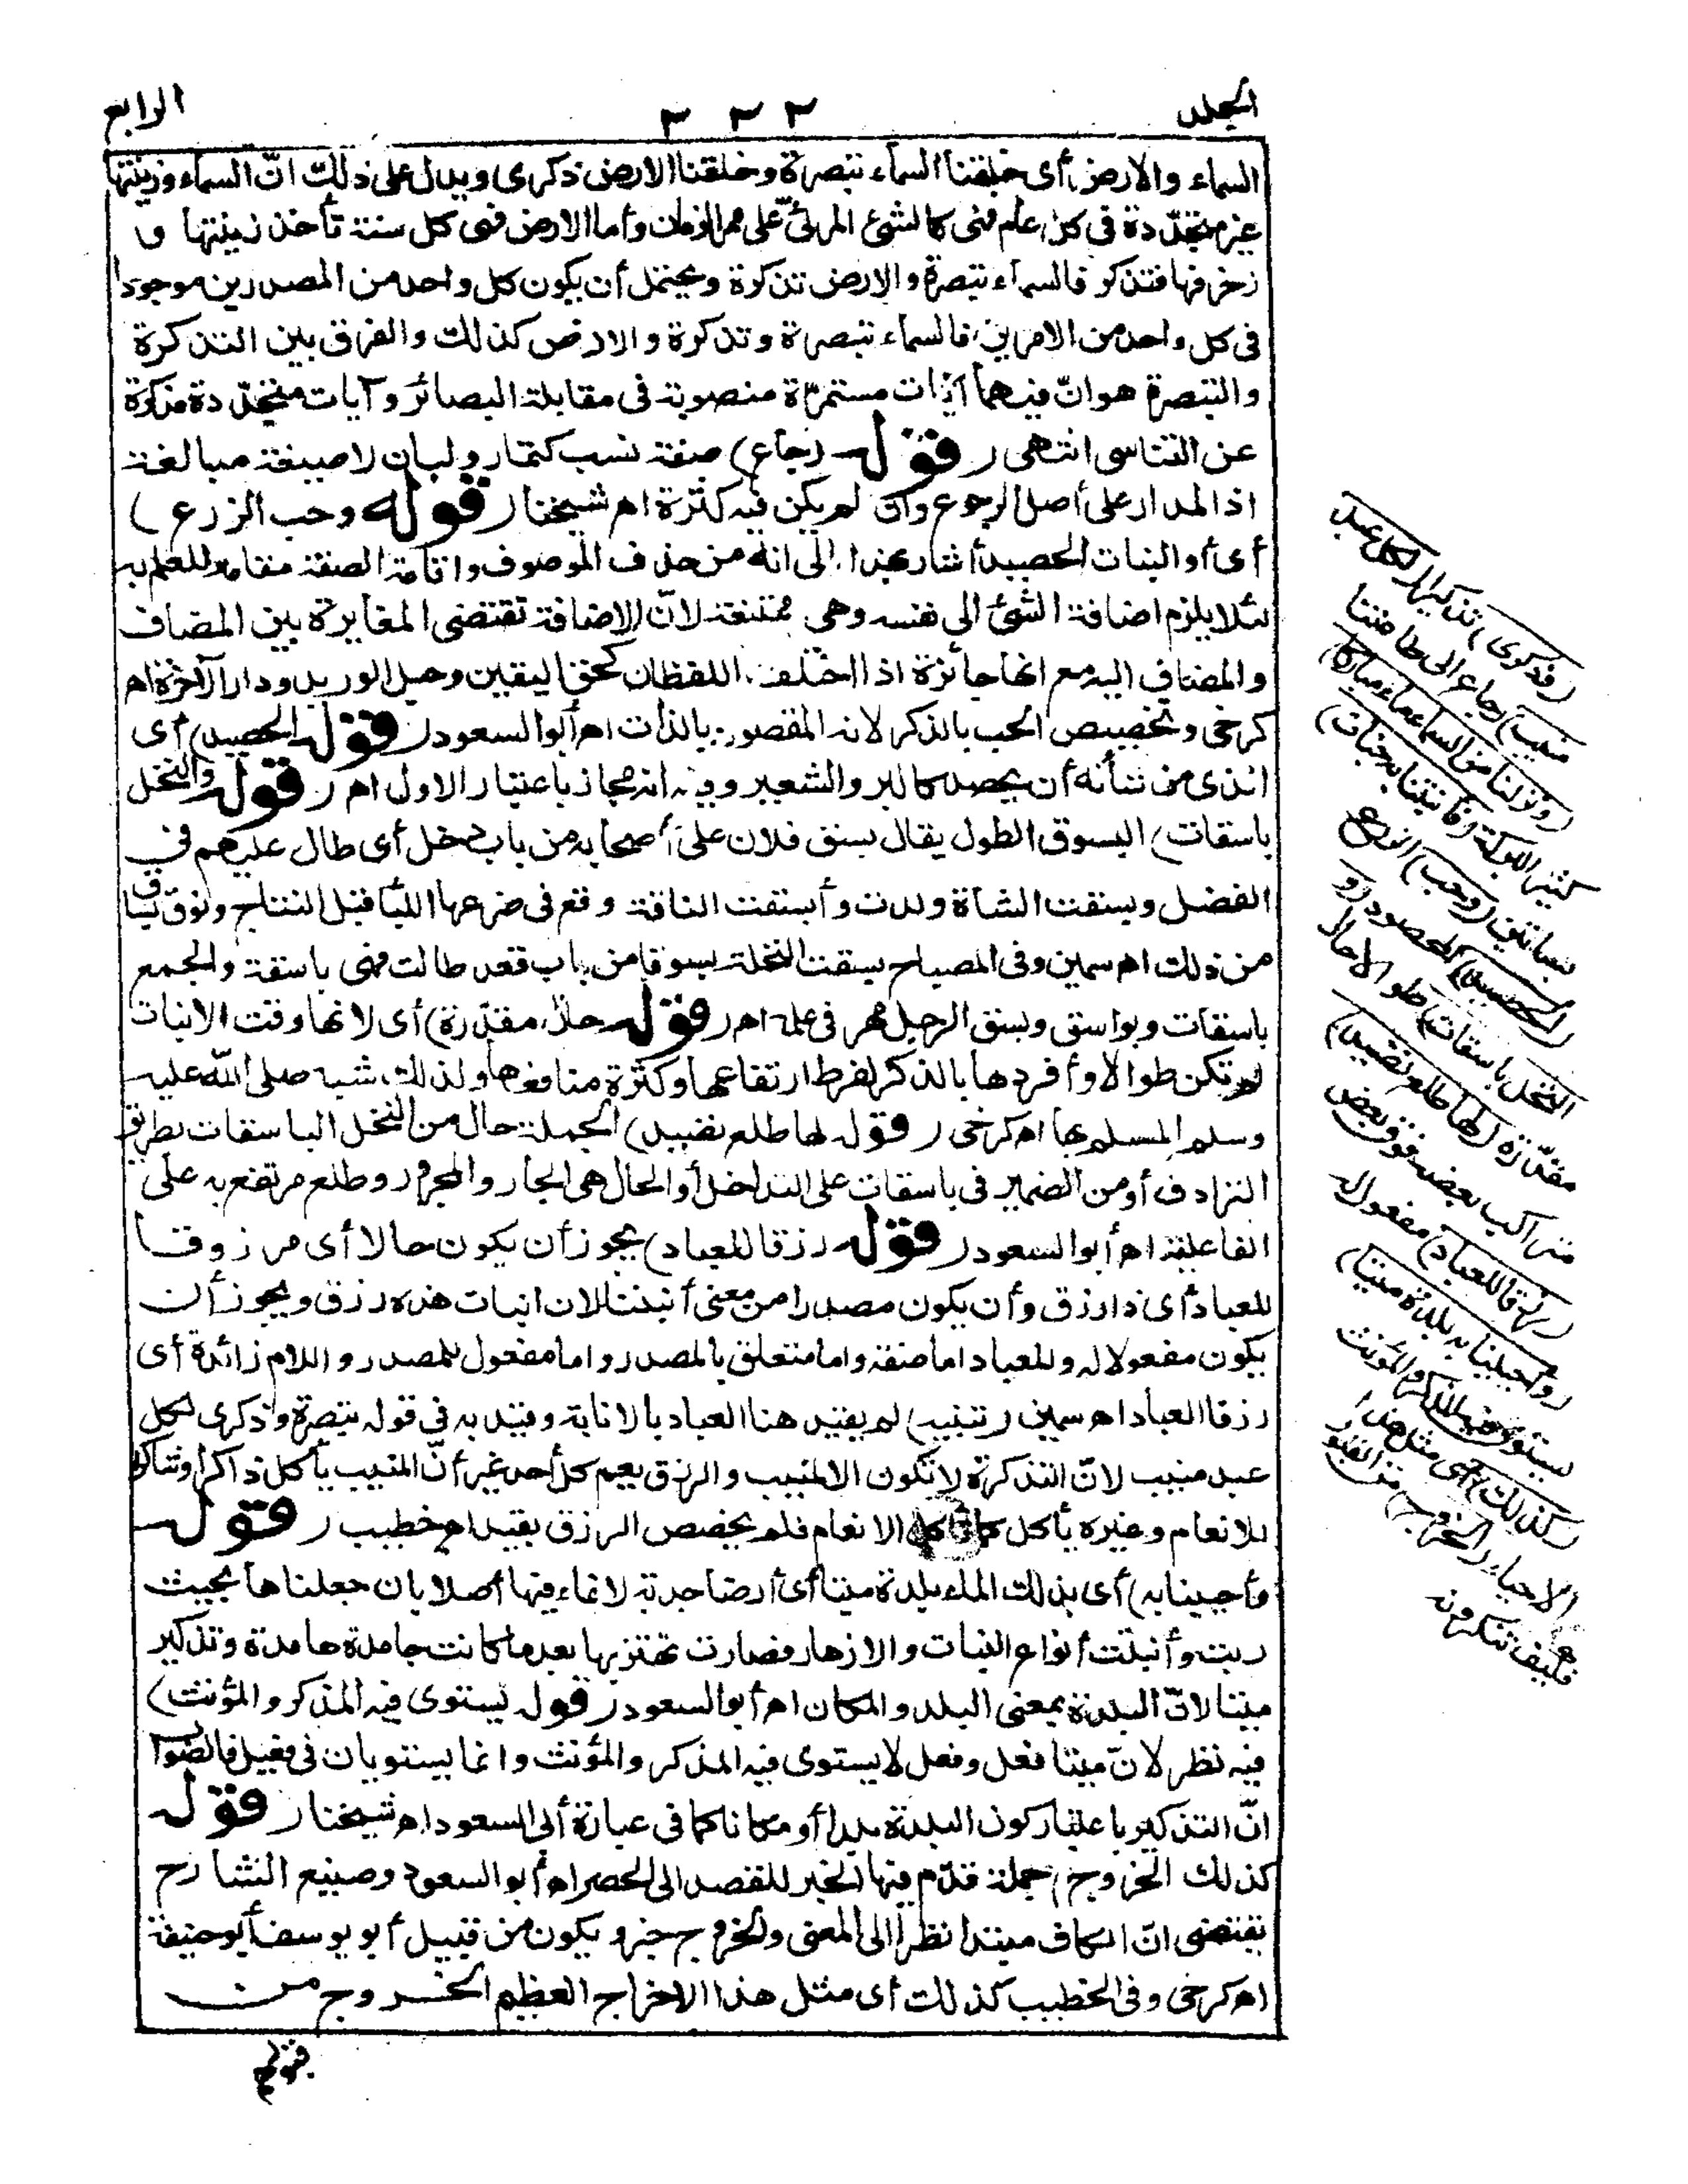 المجلد
٢٢٣
الرابع
السماء والارض أى خلقنا السماء تبصرة وخلقنا الارض ذكرى ويدل على ذلك انّ السماء وزينتها
غير متجدّدة فى كل عام فهى كالشئ المرئىّ على ممر الزمان وأما الارض فهى كل سنة تأخذ زينتها و
زخرفها فتذكر فالسماء تبصرة والارض تذكرة ويحتمل أن يكون كل واحد من المصدرين موجودا
فى كل واحد من الامرين فالسماء تبصرة وتذكرة والارض كذلك والفرق بين التذكرة
والتبصرة هو انّ فيهما آيات مستمرّة منصوبة فى مقابلة البصائر وآيات متجدّدة مذكرة
عن التناسى انتهى (قوله رجاع) صفة نسب كتمار ولبان لا صيغة مبالغة
اذ المدار على أصل الرجوع وان لم يكن فيه كثرة اه شيخنا (قوله وحب الزرع)
أى أو النبات الحصيد أشار بهذا الى انه من حذف الموصوف واقامة الصفة مقامه للعلم به
لئلا يلزم اضافة الشئ الى نفسه وهى ممتنعة لانّ الاضافة تقتضى المغايرة بين المضاف
والمضاف اليه مع انها جائزة اذا اختلف اللفظان كحق اليقين وحبل الوريد ودار الآخرة اه
كرخى وتخصيص الحب بالذكر لانه المقصود بالذات اه أبو السعود (قوله الحصيد) أى
الذى من شأنه أن يحصد كالبر والشعير وفيه انه مجاز باعتبار الاول اه (قوله والنخل
باسقات) البسوق الطول يقال بسق فلان على أصحابه من باب دخل أى طال عليهم فى
الفضل وبسقت الشاة ولدت وأبسقت الناقة وقع فى ضرعها اللبأ قبل النتاج ونوق بساق
من ذلك اه سمين وفى المصباح بسقت النخلة بسوقا من باب قعد طالت فهى باسقة والجمع
باسقات وبواسق وبسق الرجل مهر فى علمه اه (قوله حال مقدّرة) أى لانها وقت الانبات
لم تكن طوالا وأفردها بالذكر لفرط ارتفاعها وكثرة منافعها ولذلك شبه صلى الله عليه
وسلم المسلم بها اه كرخى (قوله لها طلع نضيد) الجملة حال من النخل الباسقات بطريق
الترادف أو من الضمير فى باسقات على التداخل أو الحال هى الجار والمجرور وطلع مرتفع به على
الفاعلية اه أبو السعود (قوله رزقا للعباد) يجوز أن يكون حالا أى مرزوقا
للعباد أى ذا رزق وأن يكون مصدرا من معنى أنبتنا لان انبات هذه رزق ويجوز أن
يكون مفعولا له وللعباد اما صفة واما متعلق بالمصدر واما مفعول للمصدر واللام زائدة أى
رزقا العباد اه سمين (تنبيه) لم يقيد هنا العباد بالانابة وقيد به فى قوله تبصرة وذكرى لكل
عبد منيب لانّ التذكرة لا تكون الا لمنيب والرزق يعم كل أحد غير أنّ المنيب يأكل ذاكرا وشاكرا
للانعام وغيره يأكل كما تأكل الانعام فلم يخصص الرزق بقيد اه خطيب (قوله
وأحيينا به) أى بذلك الماء بلدة ميتا أى أرضا جدبة لا نماء فيها أصلا بان جعلناها بحيث
ربت وأنبتت أنواع النبات والازهار فصارت تهتز بها بعد ما كانت جامدة هامدة وتذكير
ميتا لانّ البلدة بمعنى البلد والمكان اه أبو السعود (قوله يستوى فيه المذكر والمؤنث)
فيه نظر لانّ ميتا فعل وفعل لا يستوى فيه المذكر والمؤنث وانما يستويان فى فعيل فالصواب
انّ التذكير باعتبار كون البلدة بلدا أو مكانا كما فى عبارة أبى السعود اه شيخنا (قوله
كذلك الخروج) جملة قدّم فيها الخبر للقصد الى الحصر اه أبو السعود وصنيع الشارح
يقتضى انّ الكاف مبتدا نظرا الى المعنى والخروج خبر ويكون من قبيل أبو يوسف أبو حنيفة
اه كرخى وفى الخطيب كذلك أى مثل هذا الاخراج العظيم الخروج من
قبورهم
(وذكرى) تذكيرا (لكل عبد
منيب) رجاع الى طاعتنا
(ونزلنا من السماء ماء مباركا)
كثير البركة (فأنبتنا به جنات)
بساتين (وحب) الزرع
(الحصيد) المحصود (و
النخل باسقات) طوالا حال
مقدّرة (لها طلع نضيد)
متراكب بعضه فوق بعض
(رزقا للعباد) مفعول له
(وأحيينا به بلدة ميتا)
يستوى فيه المذكر والمؤنث
(كذلك) أى مثل هذا
الاحياء (الخروج) من القبور
فكيف تنكرونه